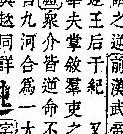 之逆前漢武
逆王后于紀又
夫掌敘羣吏之
衆介皆逆命不
九河合爲一
與趙同詳